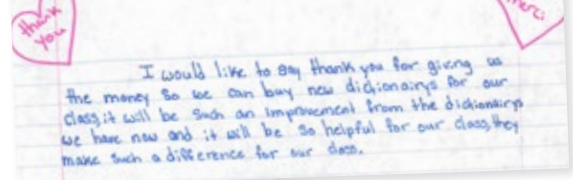 thank
you
merci
I would like to say thank you for giving us
the money so we can buy new dictionairys for our
class, it will be such an improvement from the dictionairys
we have now and it will be so helpful for our class, they
make such a difference for our class.